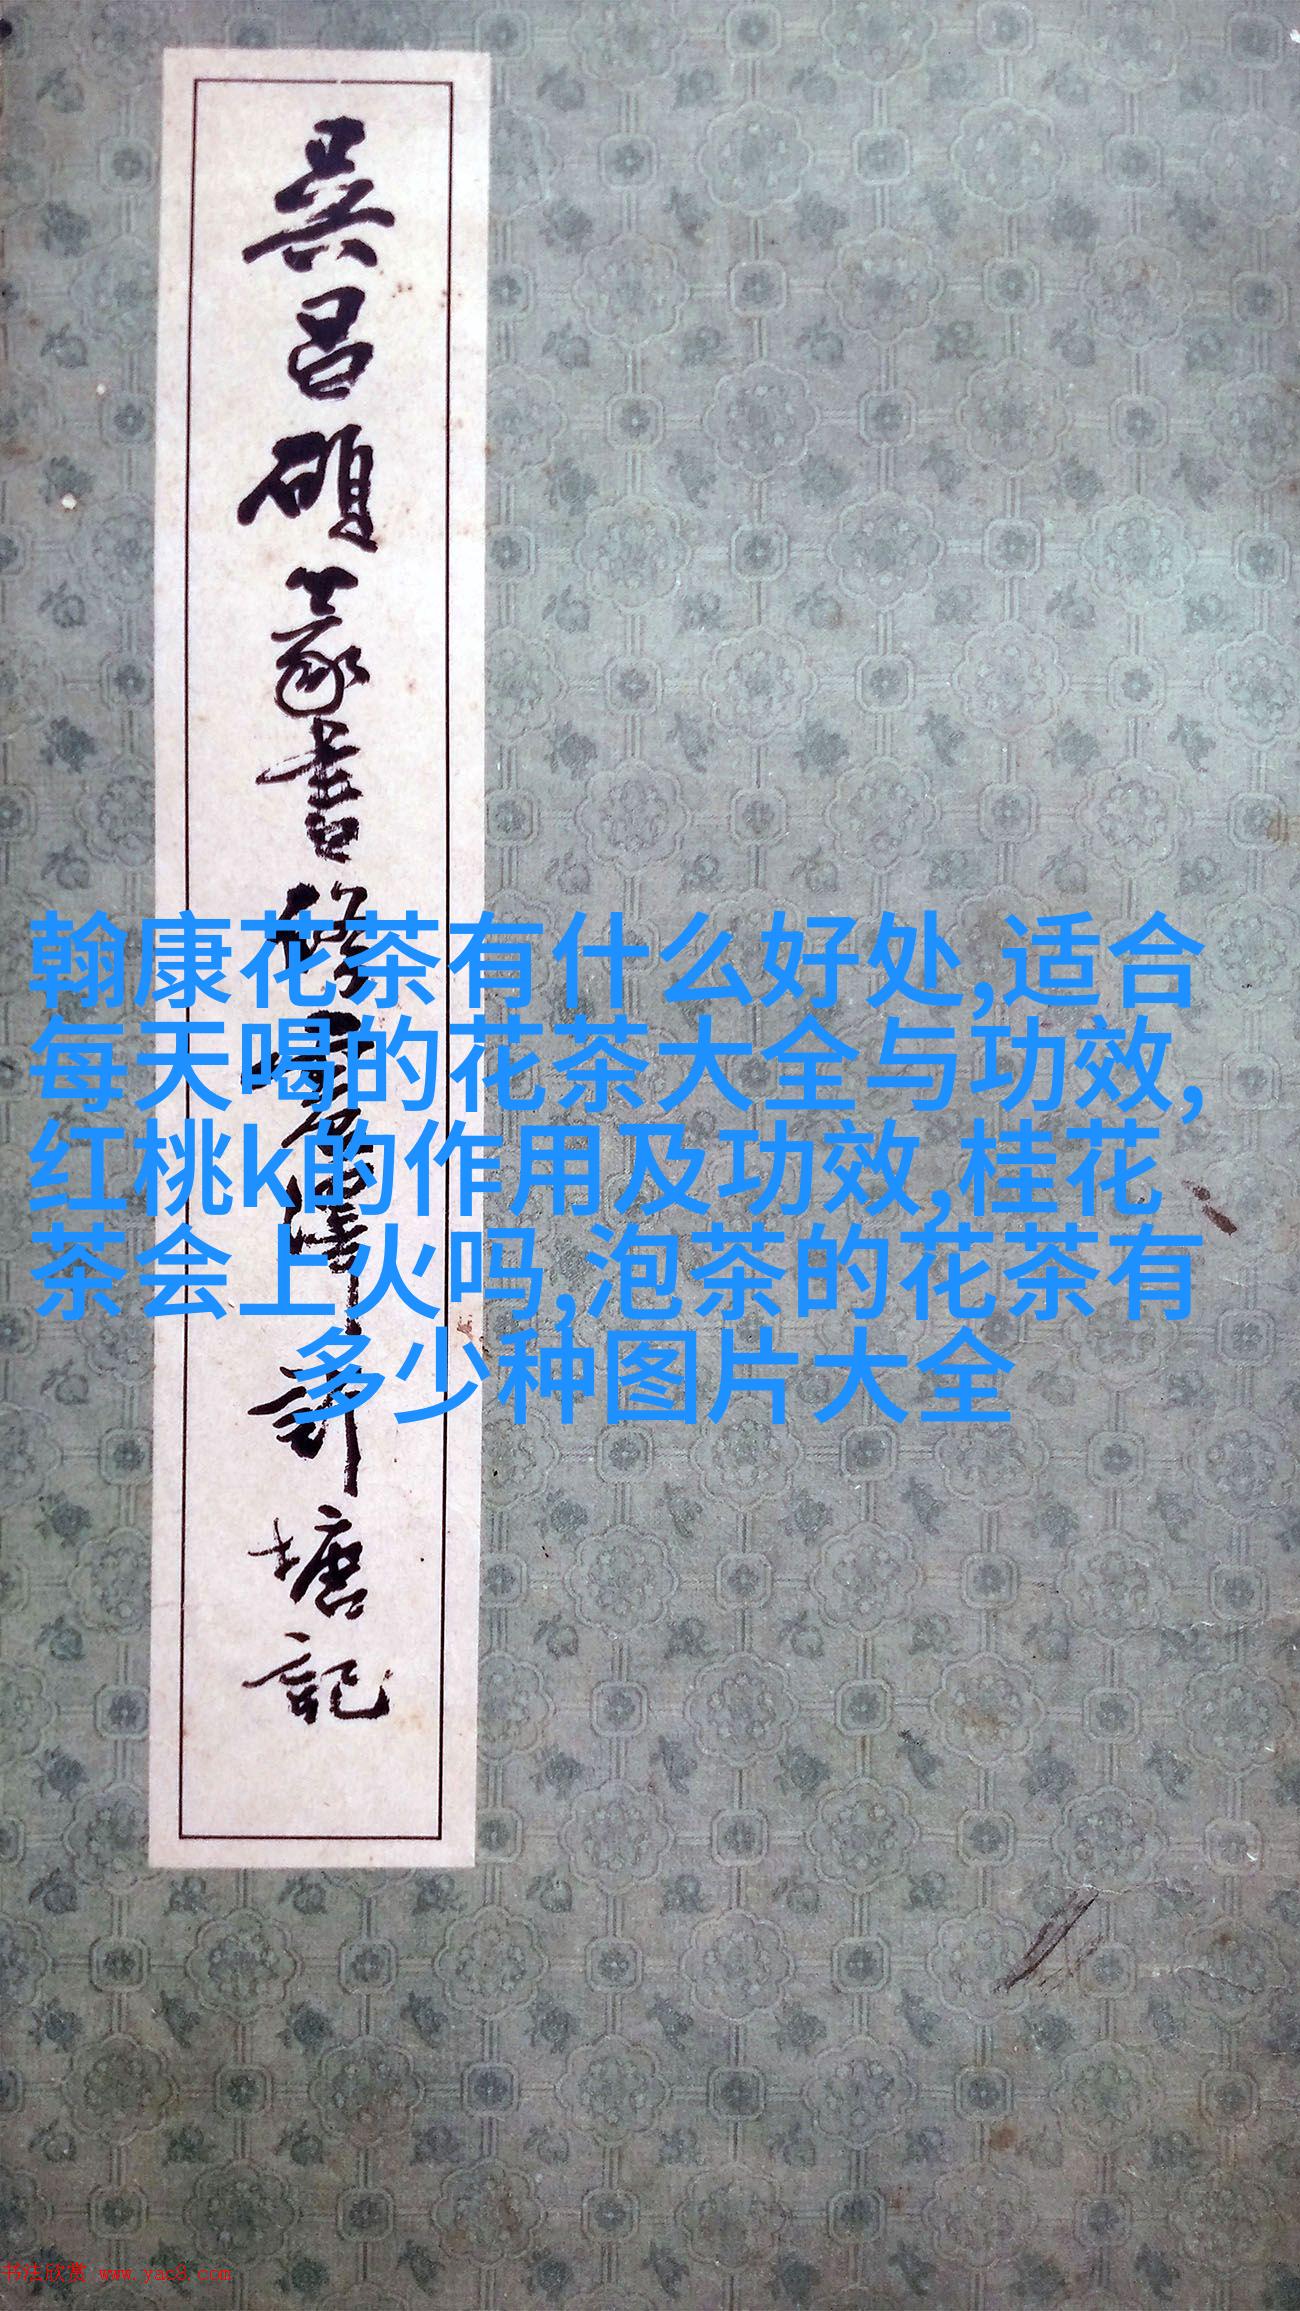 吳昌碩篆書修震澤許塘記
翰康花茶有什么好处,适合
每天喝的花茶大全与功效,
红桃k的作用及功效,桂花
茶会上火吗,泡茶的花茶有
多少种图片大全
书法欣赏 www.yac8.com